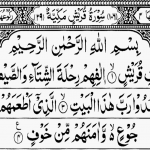 (١٠٦) سُوْرَةُ قُرَيْشٍ مَكِّيَّةٌ (٢٩)
بِسْمِ اللّٰهِ الرَّحْمٰنِ الرَّحِيْمِ
قُرَيْشٍ ۙ﴿١﴾ اٖلٰفِهِمْ رِحْلَةَ الشِّتَآءِ وَالصَّيْفِ
رَبَّ هٰذَا الْبَيْتِ ۙ﴿٣﴾ الَّذِيْٓ اَطْعَمَهُمْ
جُوْعٍ ۙ وَّاٰمَنَهُمْ مِّنْ خَوْفٍ ﴿٤﴾